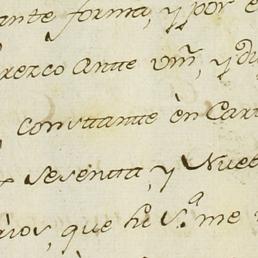 ante forma, y por e
rezco Antte Vm, y di
constante èn Car
Sesentta, y Nue
rios, que hi S.ª me